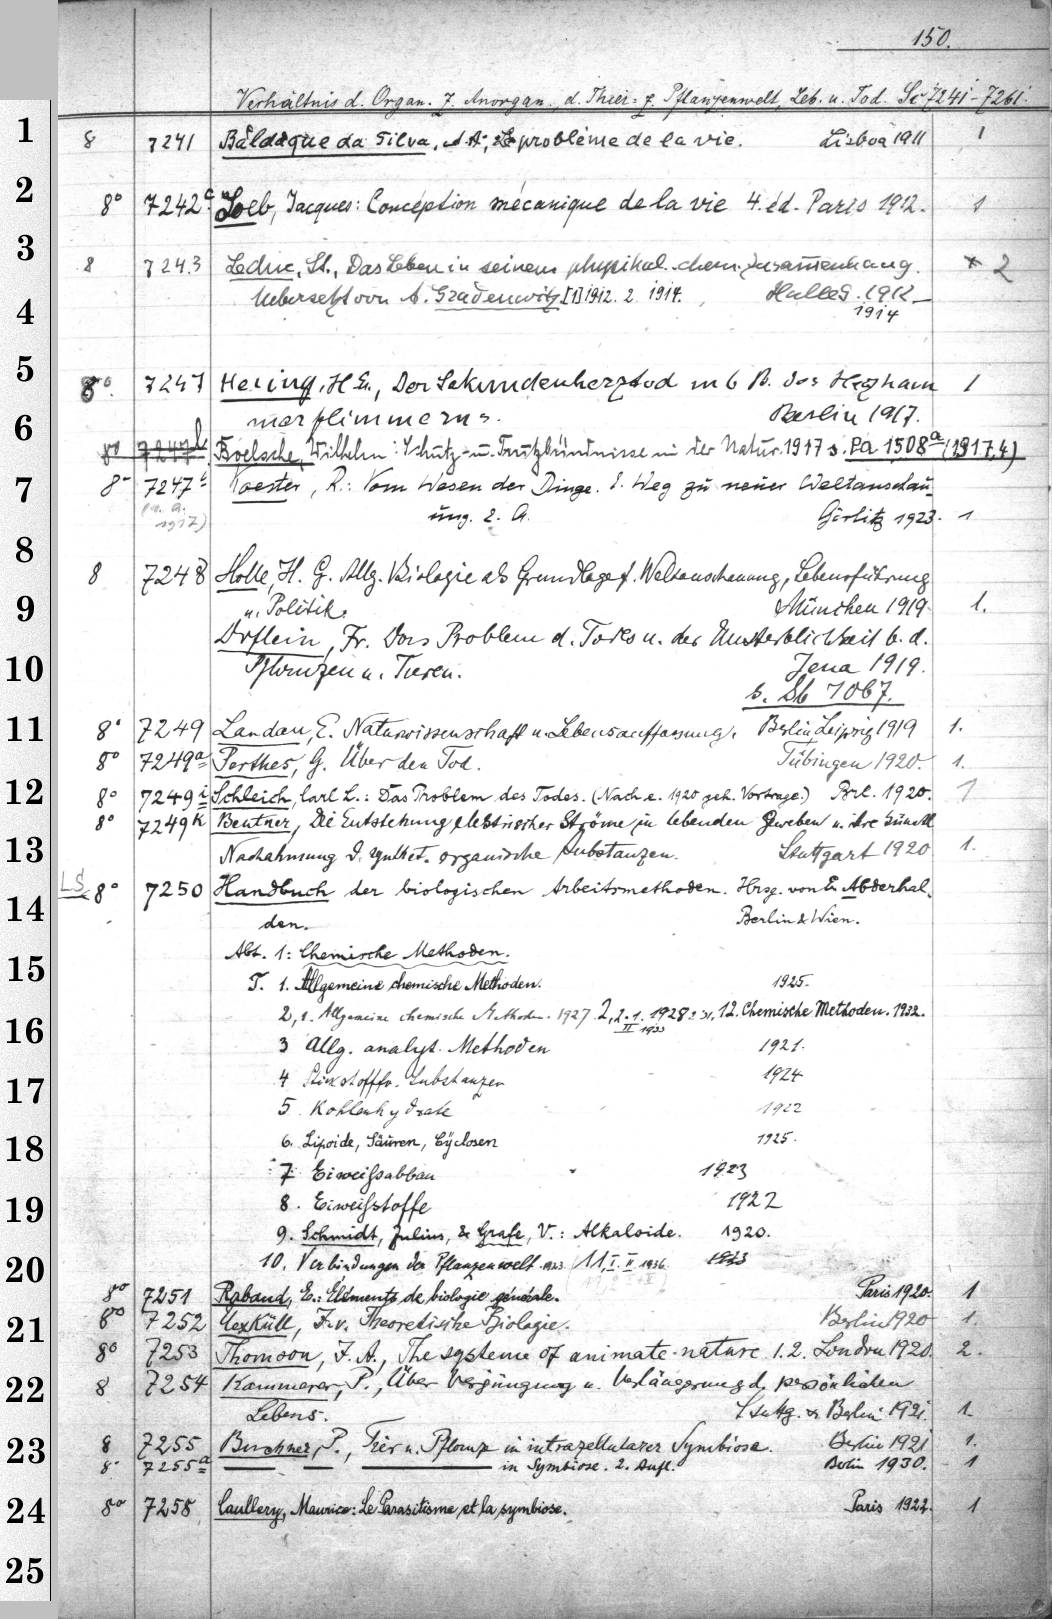 150.
Verhältnis d. Organ. z. Anorgan., d. Thier- z. Pflanzenwelt, Leb. u. Tod. Sc 7241-7261
1
8 7241 Báldaque da Silva, A. A., Le problème de la vie. Lisboa 1911 1
2
8° 7242 Loeb, Jacques: Concéption mécanique de la vie 4. éd. Paris 1912. 1
3
8 7243 Leduc, St., Das Leben in seinem physikal.-chem. Zusammenhang. 2
Uebersetzt von A. Gradenwitz [1] 1912. 2. 1914. Halle S. 1912
4
1914
5
8°. 7247 Hering, H. E., Der Sekundenherztod m b B. des Herzkam
merflimmerns. Berlin 1917. 1
6
8° 7247b Boelsche, Wilhelm: Schutz- u. Trutzbündnisse in der Natur. 1917 s. La 1508a (1917,4)
7
8° 7247c Koester, R.: Vom Wesen der Dinge. E. Weg zu neuer Weltanschau-
(n. a. 1917) ung. 2. A. Görlitz 1923. 1
8
8 7248 Holle, H. G. Allg. Biologie als Grundlage f. Weltanschauung, Lebensführung
9
u. Politik. München 1919 1.
Doflein, Fr. Das Problem d. Todes u. der Unsterblichkeit b. d.
10
Pflanzen u. Tieren. Jena 1919.
s. Sb 7067.
11
8° 7249 Landau, E. Naturwissenschaft u. Lebensauffassung. Berlin, Leipzig 1919 1.
8° 7249a Perthes, G. Über den Tod. Tübingen 1920. 1.
12
8° 7249i Schleich, Carl L.: Das Problem des Todes. (Nach e. 1920 geh. Vortrage.) Brl. 1920. 1
8° 7249k Beutner, Die Entstehung elektrischer Ströme in lebenden Geweben u. ihre künstl
13
Nachahmung d. synthet. organische Substanzen. Stuttgart 1920 1.
LS 8° 7250 Handbuch der biologischen Arbeitsmethoden. Hrsg. von E. Abderhal-
14
den. Berlin & Wien.
Abt. 1: Chemische Methoden.
15
T. 1. Allgemeine chemische Methoden. 1925.
2,1. Allgemeine chemische Methoden. 1927. 2,2.1. 1928 12. Chemische Methoden. 1932.
16
II 1933
3 Allg. analyt. Methoden 1921.
17
4 Stickstoffh. Substanzen 1924
5. Kohlenhydrate 1922
18
6. Lipoide, Säuren, Cyclosen 1925.
7 Eiweißabbau 1923
19
8. Eiweißstoffe 1922
9. Schmidt, Julius, & Grafe, V.: Alkaloide. 1920.
20
10. Verbindungen der Pflanzenwelt 1923 11 I. II 1936 1923
8° 7251 Rabaud, E.: Éléments de biologie générale. Paris 1920. 1
21
8° 7252 Uexküll, J. v. Theoretische Biologie. Berlin 1920 1.
8° 7253 Thomson, J. A., The systeme of animate nature 1. 2. London 1920. 2.
22
8 7254 Kammerer, P., Über Verjüngung u. Verlängerung d. persönlichen
Lebens. Stuttg. & Berlin 1921. 1
23
8 7255 Buchner, P., Tier u. Pflanze in intrazellularer Symbiose. Berlin 1921 1.
8° 7255a in Symbiose. 2. Aufl. Berlin 1930. 1
24
8° 7258 Caullery, Maurice: Le Parasitisme et la symbiose. Paris 1922. 1
25